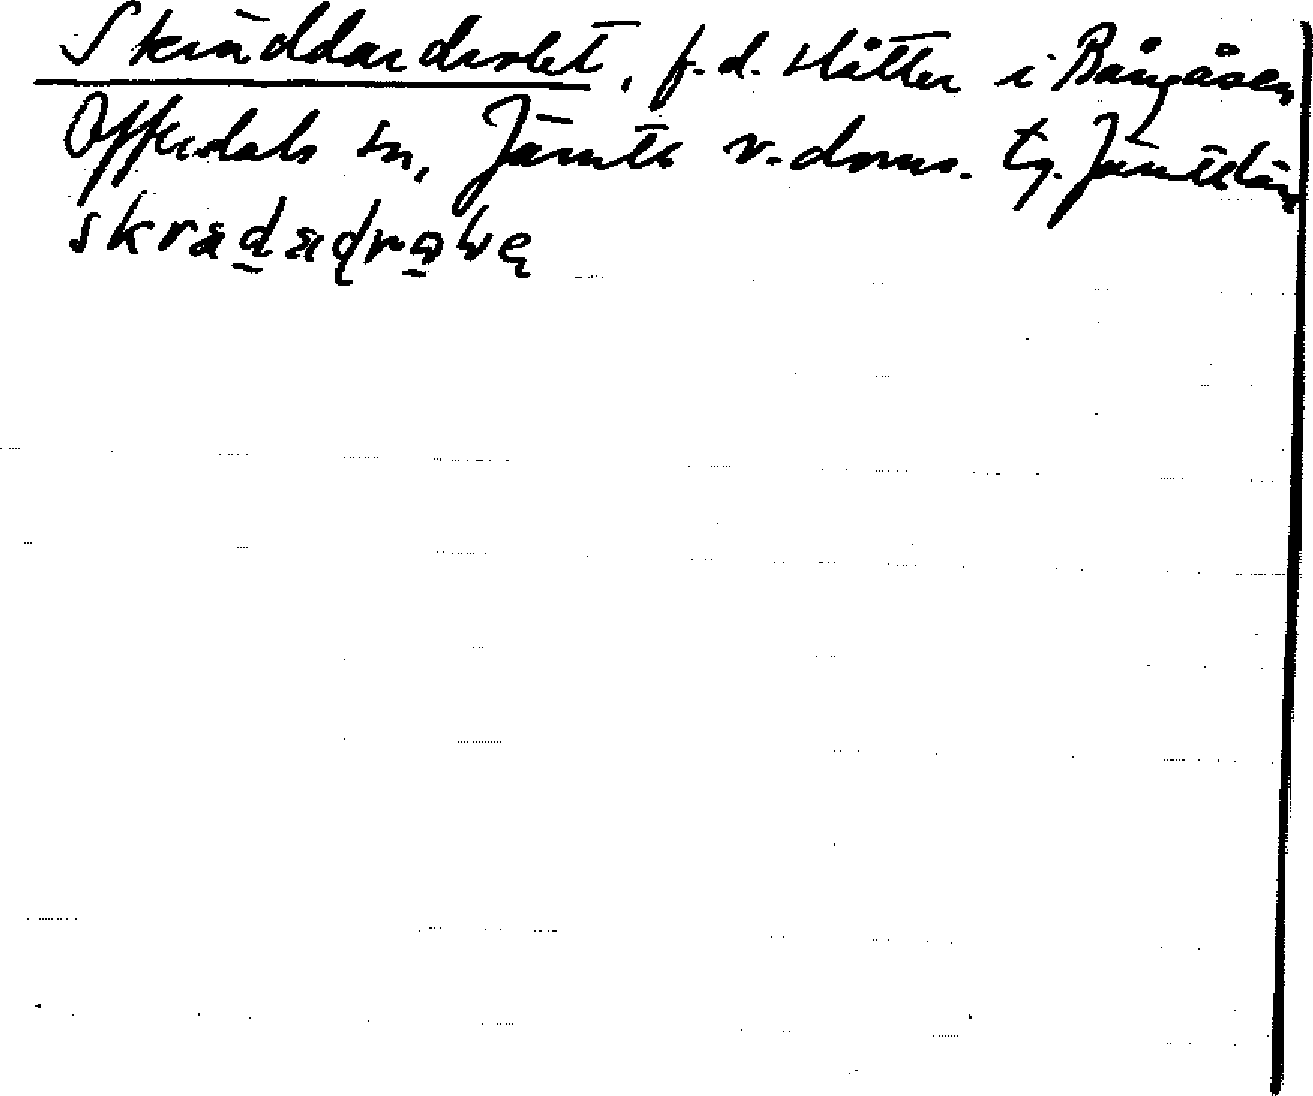 Skräddardrolet, f.d. slåtter i Rångåsen
Offerdals sn, Jämtl. v. doms. tg. Jämtl. län
skrädadrolve